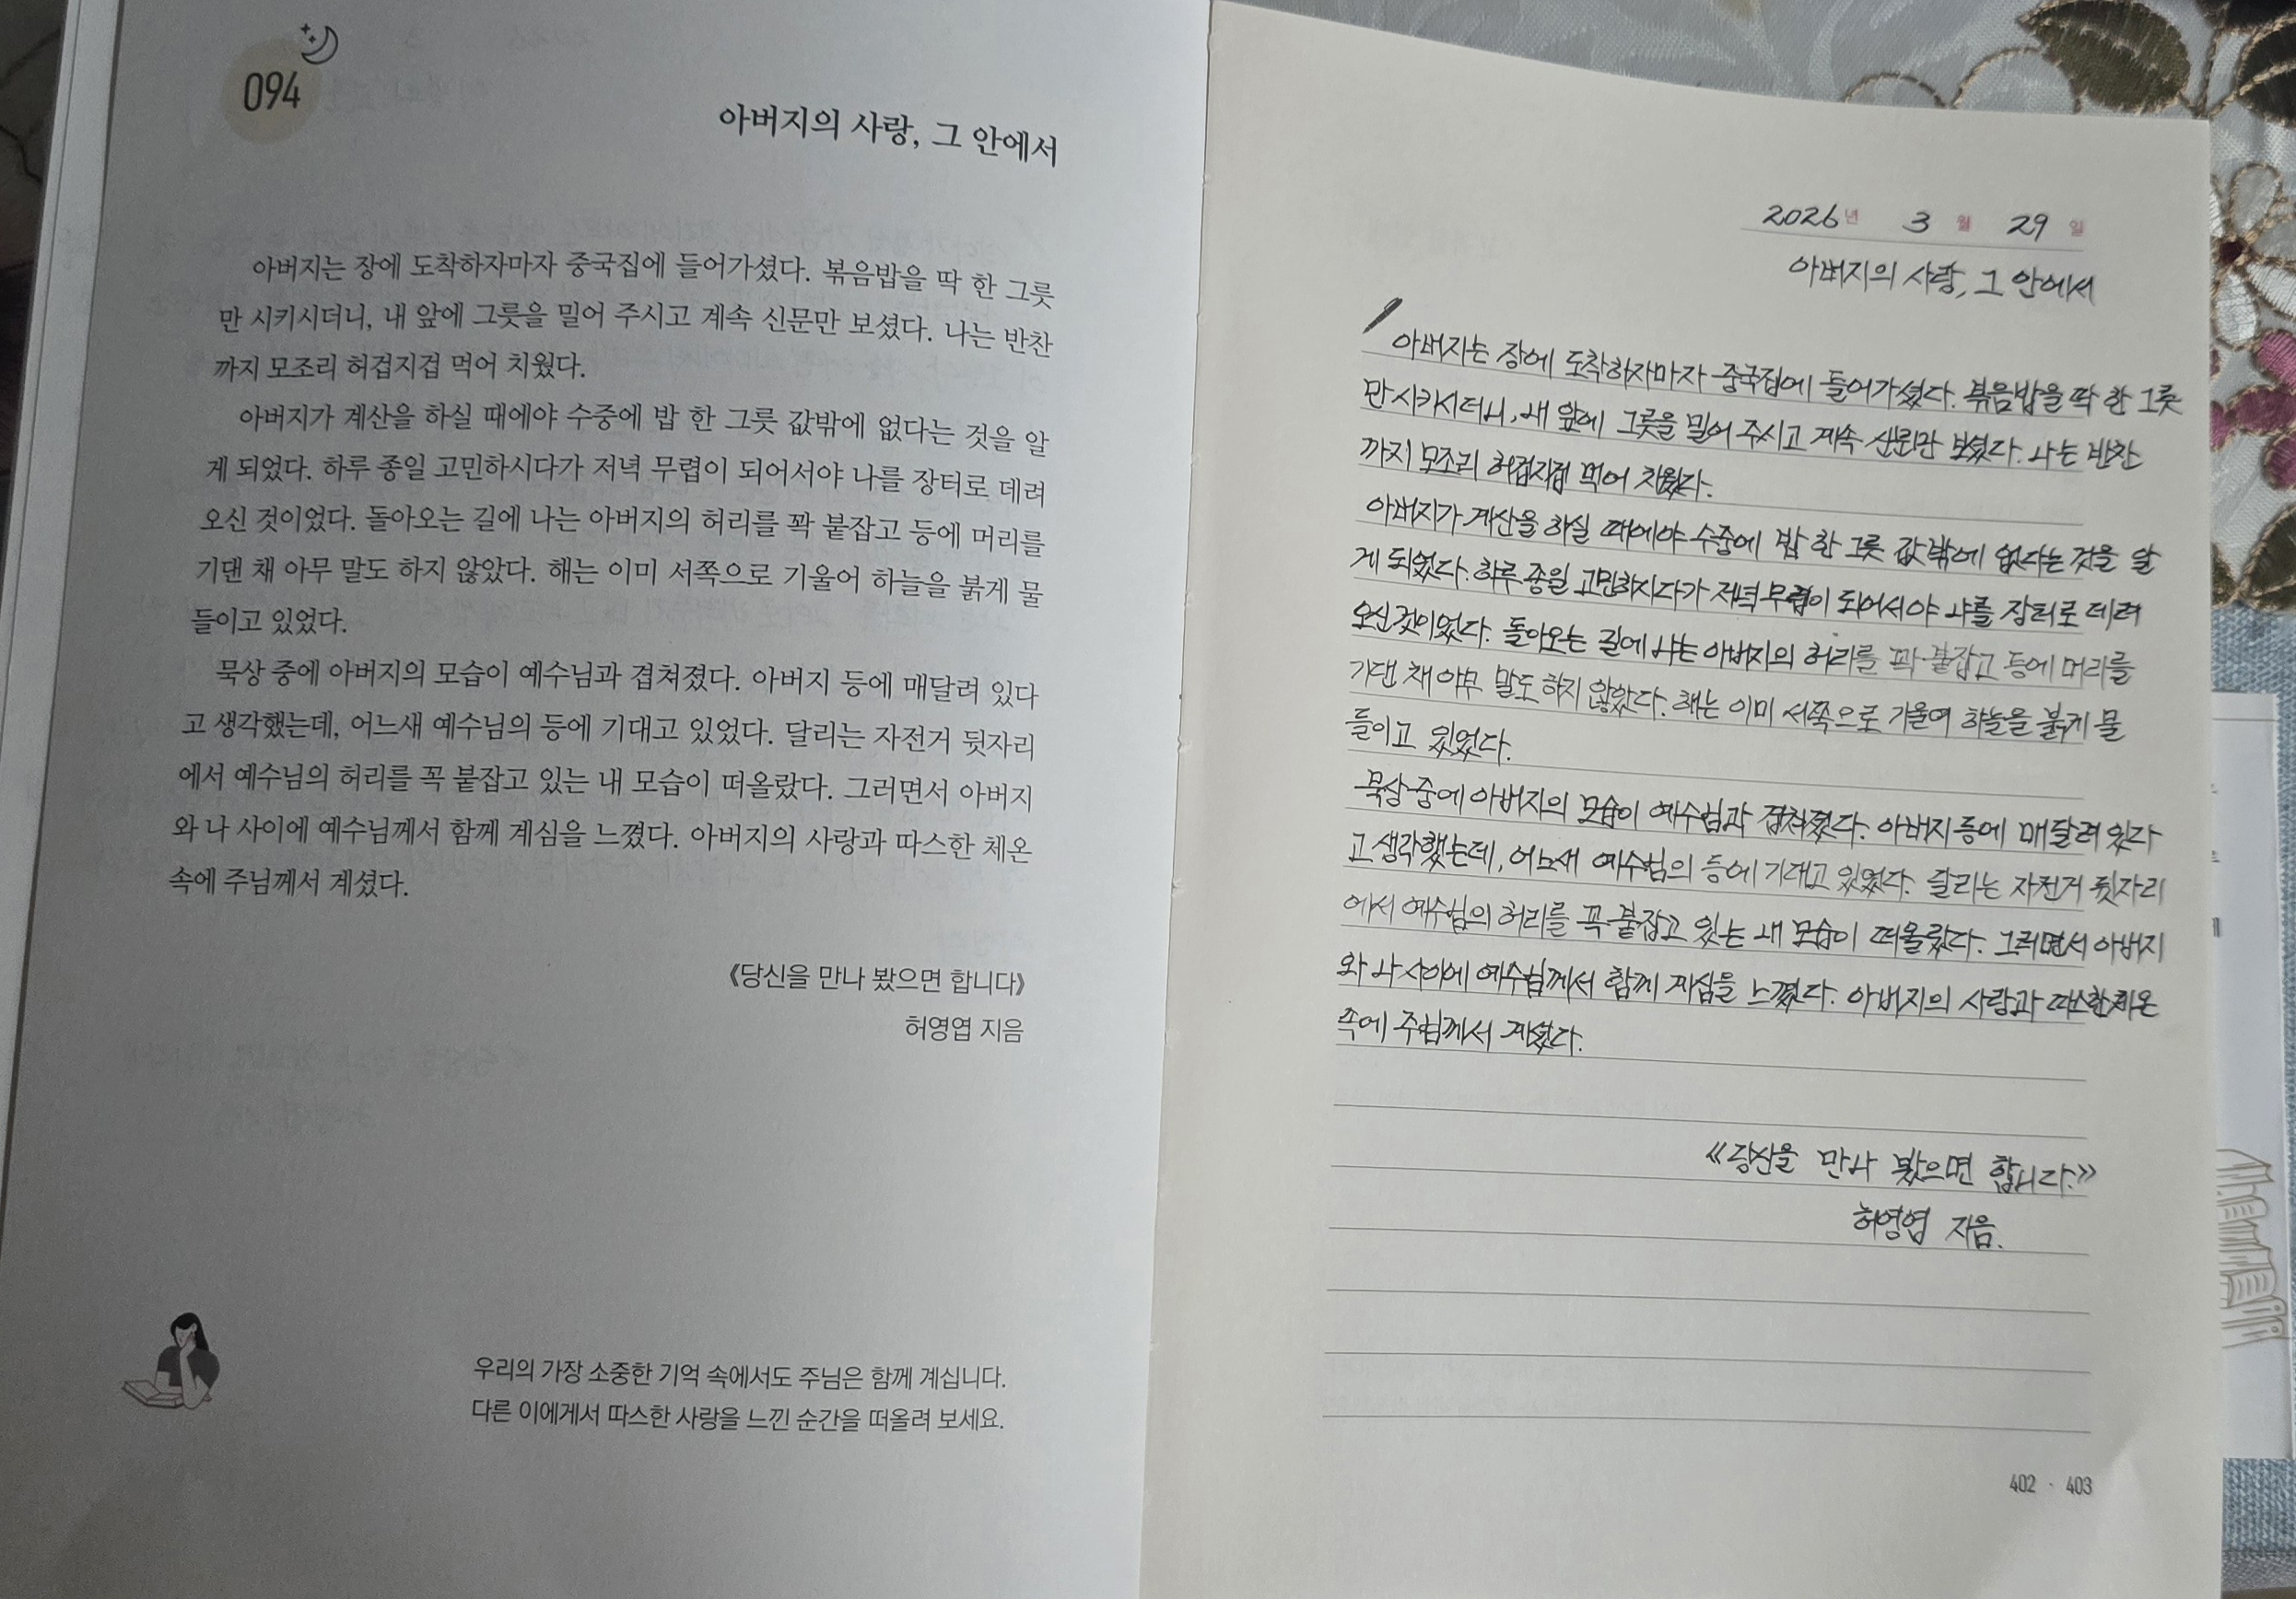 094
아버지의 사랑, 그 안에서
아버지는 장에 도착하자마자 중국집에 들어가셨다. 볶음밥을 딱 한 그릇
만 시키시더니, 내 앞에 그릇을 밀어 주시고 계속 신문만 보셨다. 나는 반찬
까지 모조리 허겁지겁 먹어 치웠다.
아버지가 계산을 하실 때에야 수중에 밥 한 그릇 값밖에 없다는 것을 알
게 되었다. 하루 종일 고민하시다가 저녁 무렵이 되어서야 나를 장터로 데려
오신 것이었다. 돌아오는 길에 나는 아버지의 허리를 꽉 붙잡고 등에 머리를
기댄 채 아무 말도 하지 않았다. 해는 이미 서쪽으로 기울어 하늘을 붉게 물
들이고 있었다.
묵상 중에 아버지의 모습이 예수님과 겹쳐졌다. 아버지 등에 매달려 있다
고 생각했는데, 어느새 예수님의 등에 기대고 있었다. 달리는 자전거 뒷자리
에서 예수님의 허리를 꼭 붙잡고 있는 내 모습이 떠올랐다. 그러면서 아버지
와 나 사이에 예수님께서 함께 계심을 느꼈다. 아버지의 사랑과 따스한 체온
속에 주님께서 계셨다.
《당신을 만나 봤으면 합니다》
허영엽 지음
우리의 가장 소중한 기억 속에서도 주님은 함께 계십니다.
다른 이에게서 따스한 사랑을 느낀 순간을 떠올려 보세요.
2026년 3월 29일
아버지의 사랑, 그 안에서
아버지는 장에 도착하자마자 중국집에 들어가셨다. 볶음밥을 딱 한 그릇
만 시키시더니, 내 앞에 그릇을 밀어 주시고 계속 신문만 보셨다. 나는 반찬
까지 모조리 허겁지겁 먹어 치웠다.
아버지가 계산을 하실 때에야 수중에 밥 한 그릇 값밖에 없다는 것을 알
게 되었다. 하루 종일 고민하시다가 저녁 무렵이 되어서야 나를 장터로 데려
오신 것이었다. 돌아오는 길에 나는 아버지의 허리를 꽉 붙잡고 등에 머리를
기댄 채 아무 말도 하지 않았다. 해는 이미 서쪽으로 기울어 하늘을 붉게 물
들이고 있었다.
묵상 중에 아버지의 모습이 예수님과 겹쳐졌다. 아버지 등에 매달려 있다
고 생각했는데, 어느새 예수님의 등에 기대고 있었다. 달리는 자전거 뒷자리
에서 예수님의 허리를 꼭 붙잡고 있는 내 모습이 떠올랐다. 그러면서 아버지
와 나 사이에 예수님께서 함께 계심을 느꼈다. 아버지의 사랑과 따스한 체온
속에 주님께서 계셨다.
《당신을 만나 봤으면 합니다.》
허영엽 지음.
402 · 403